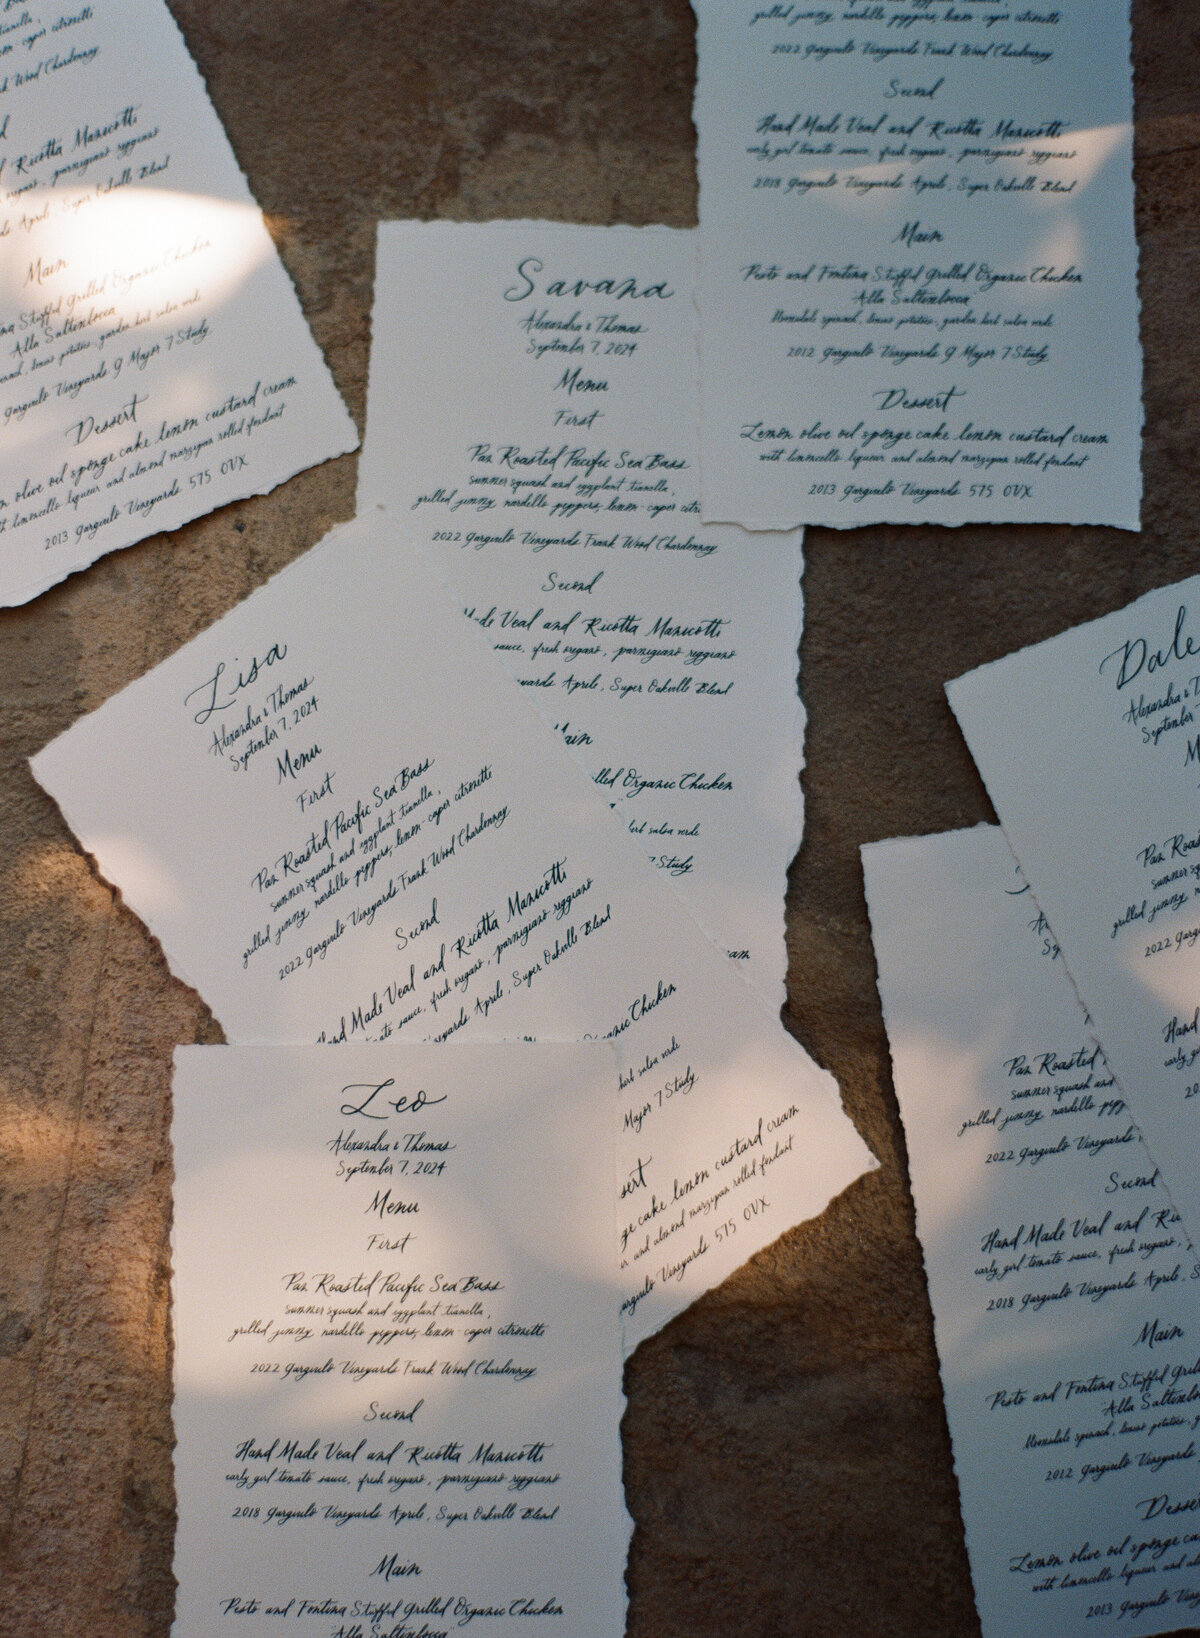 tianella,
caper citronette
Wood Chardonnay
Ricotta Manicotti
oregano, parmigiano reggiano
Aprile, Super Oakville Blend
Main
Stuffed Grilled Organic Chicken
Alla Saltenbocca
limus potatoes, garden herb salsa verde
Gargiulo Vineyards G Major 7 Study
Dessert
olive oil sponge cake lemon custard cream
limoncello liqueur and almond marzipan rolled fondant
2013 Gargiulo Vineyards 575 OVX
grilled jimmy nardello peppers, lemon-caper citronette
2022 Gargiulo Vineyards Frank Wood Chardonnay
Second
Hand Made Veal and Ricotta Manicotti
early girl tomato sauce, fresh oregano, parmigiano reggiano
2018 Gargiulo Vineyards Aprile, Super Oakville Blend
Main
Pesto and Fontina Stuffed Grilled Organic Chicken
Alla Saltenbocca
Bloomsdale spinach, limus potatoes, garden herb salsa verde
2012 Gargiulo Vineyards G Major 7 Study
Dessert
Lemon olive oil sponge cake lemon custard cream
with limoncello liqueur and almond marzipan rolled fondant
2013 Gargiulo Vineyards 575 OVX
Savana
Alexandra & Thomas
September 7, 2024
Menu
First
Pan Roasted Pacific Sea Bass
summer squash and eggplant tianella,
grilled jimmy nardello peppers, lemon-caper citr
2022 Gargiulo Vineyards Frank Wood Chardonnay
Second
Made Veal and Ricotta Manicotti
sauce, fresh oregano, parmigiano reggiano
Aprile, Super Oakville Blend
Main
Organic Chicken
herb salsa verde
7 Study
Lisa
Alexandra & Thomas
September 7, 2024
Menu
First
Pan Roasted Pacific Sea Bass
summer squash and eggplant tianella,
grilled jimmy nardello peppers, lemon-caper citronette
2022 Gargiulo Vineyards Frank Wood Chardonnay
Second
Hand Made Veal and Ricotta Manicotti
sauce, fresh oregano, parmigiano reggiano
Aprile, Super Oakville Blend
Organic Chicken
herb salsa verde
Major 7 Study
sert
cake lemon custard cream
and almond marzipan rolled fondant
Vineyards 575 OVX
Leo
Alexandra & Thomas
September 7, 2024
Menu
First
Pan Roasted Pacific Sea Bass
summer squash and eggplant tianella,
grilled jimmy nardello peppers, lemon-caper citronette
2022 Gargiulo Vineyards Frank Wood Chardonnay
Second
Hand Made Veal and Ricotta Manicotti
early girl tomato sauce, fresh oregano, parmigiano reggiano
2018 Gargiulo Vineyards Aprile, Super Oakville Blend
Main
Pesto and Fontina Stuffed Grilled Organic Chicken
Alla Saltenbocca
Dale
Alexandra &
September
M
Pan Roas
summer sq
grilled jimmy
2022 Garg
Hand
early g
20
Pan Roasted
summer squash and
grilled jimmy nardello pepp
2022 Gargiulo Vineyards
Second
Hand Made Veal and Ri
early girl tomato sauce, fresh oregano,
2018 Gargiulo Vineyards Aprile, S
Main
Pesto and Fontina Stuffed Gril
Alla Saltenbo
Bloomsdale spinach, limus potatoes, g
2012 Gargiulo Vineyards
Desser
Lemon olive oil sponge ca
with limoncello liqueur and al
2013 Gargiulo Vineya